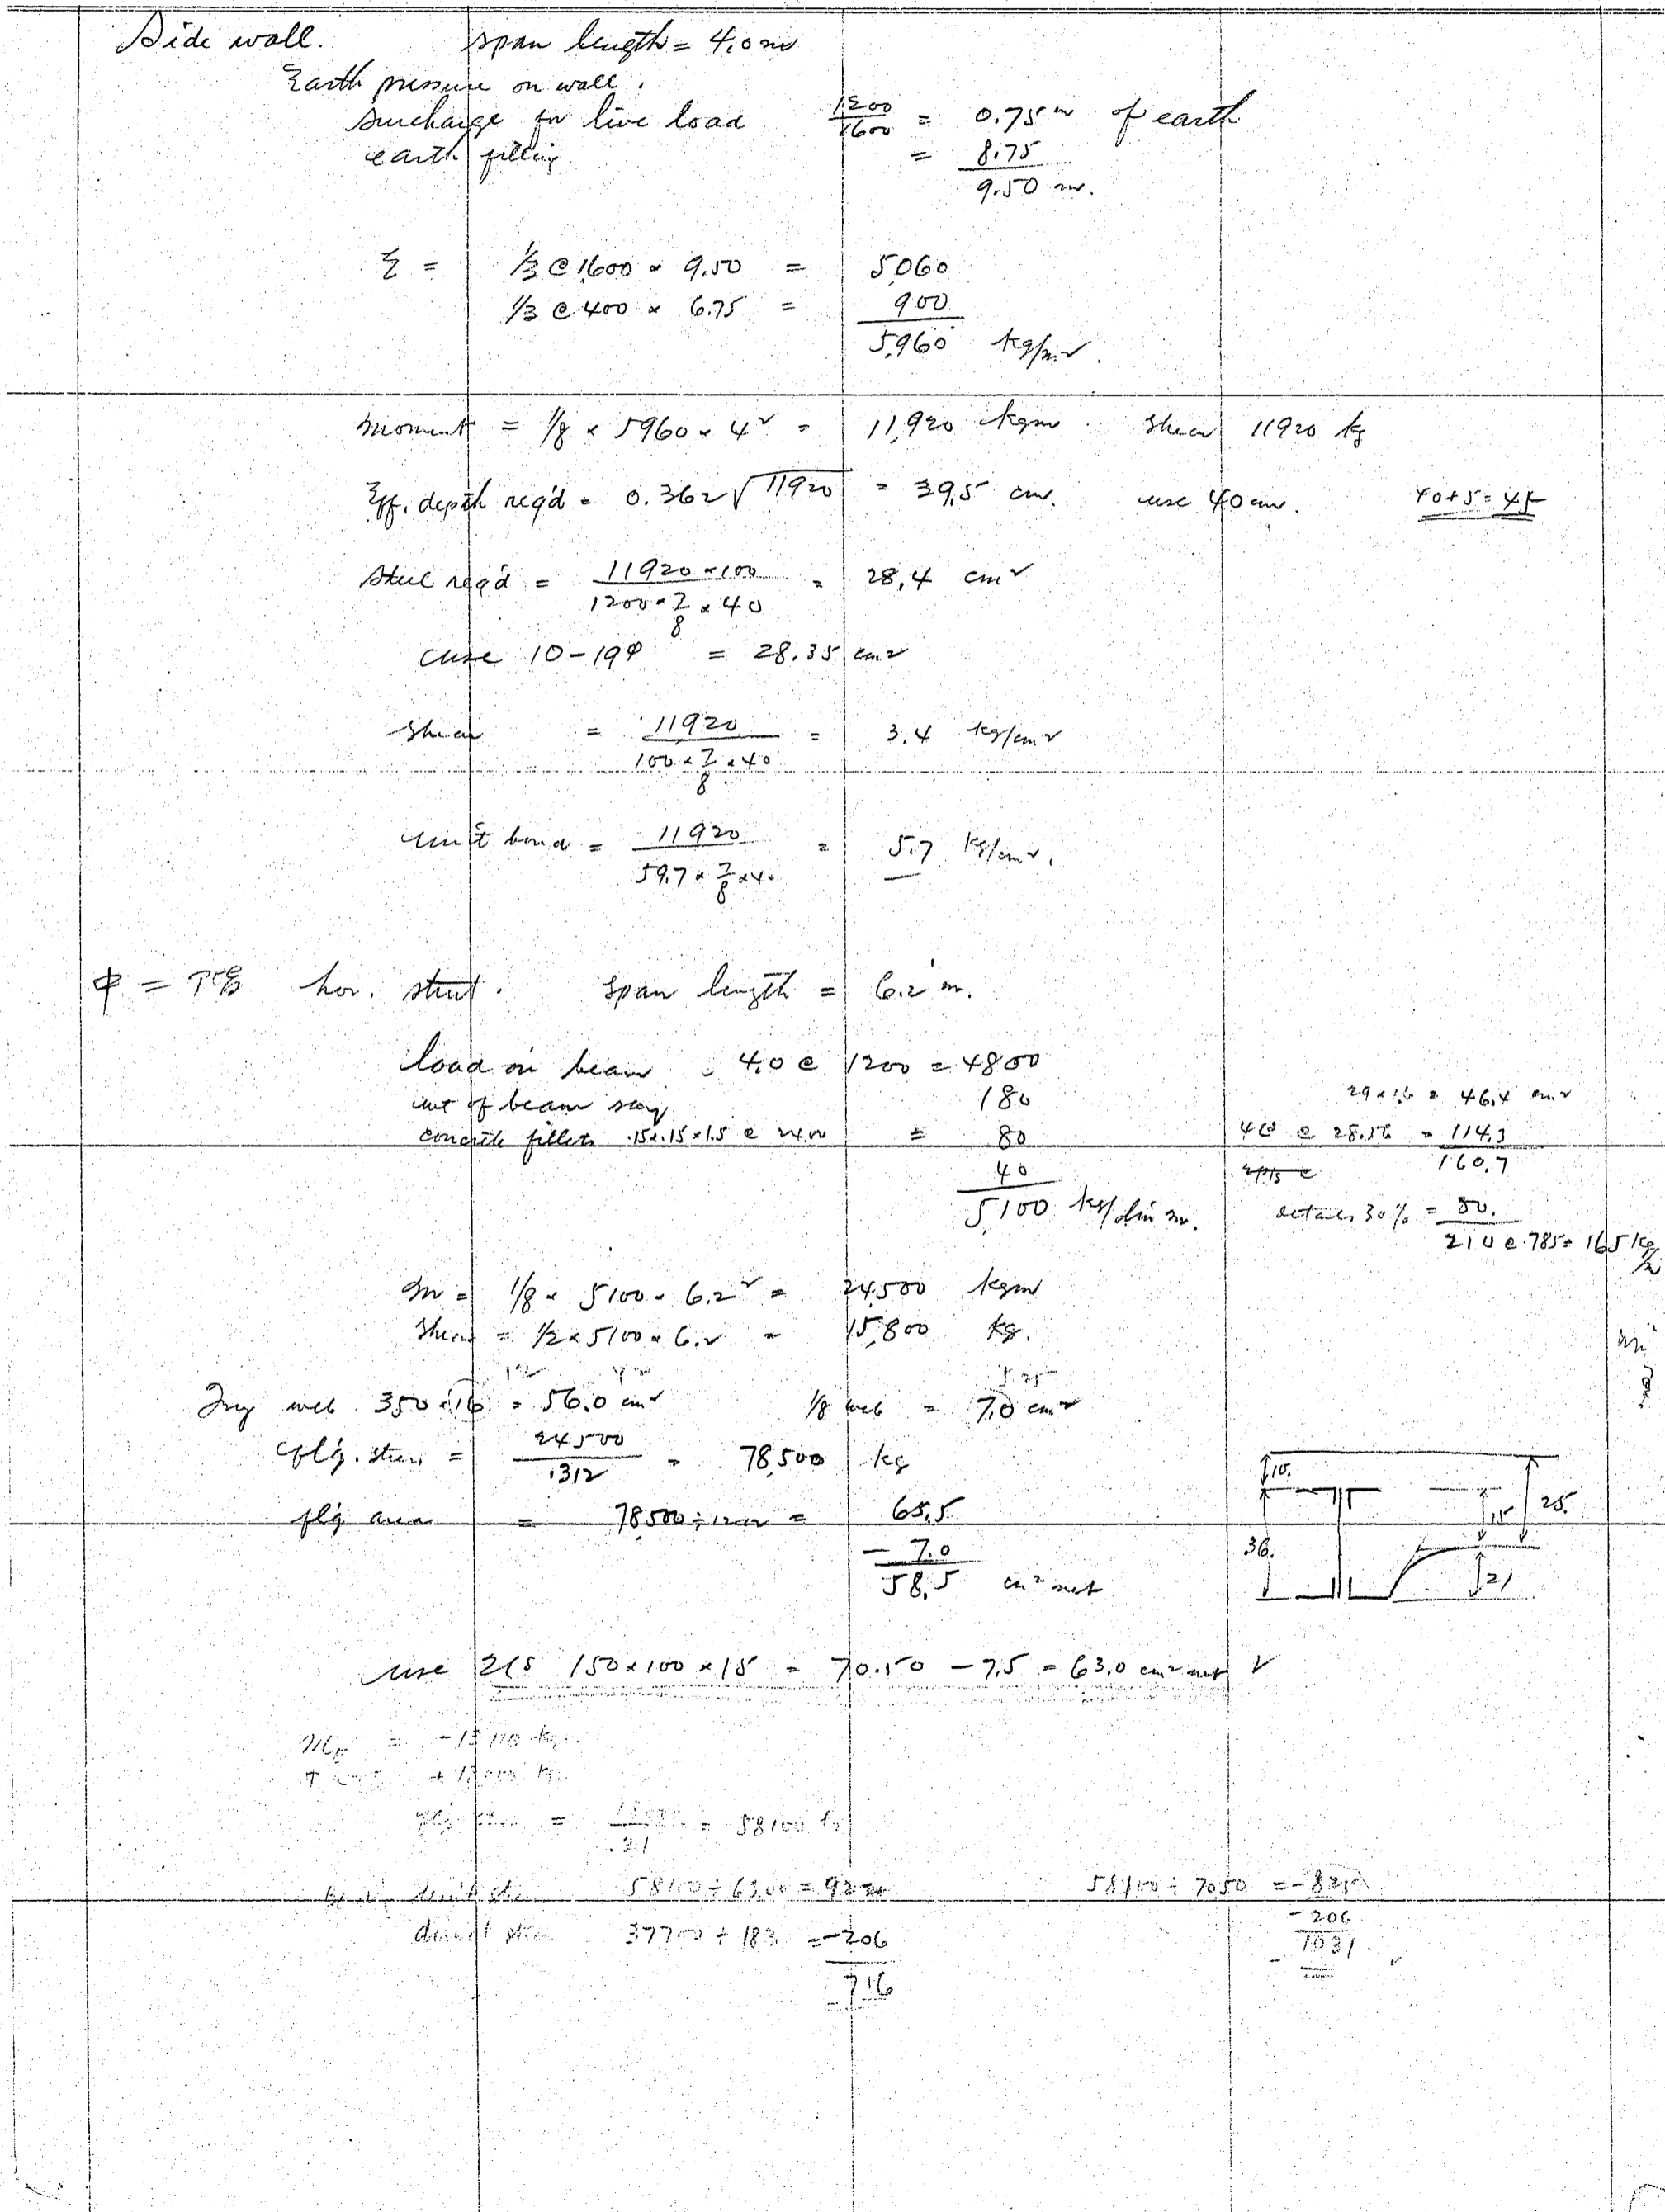 Side wall. span length = 4.0 m
Earth pressure on wall.
Surcharge for live load 1200/1600 = 0.75 m of earth
earth filling = 8.75
9.50 m.
E = 1/3 @ 1600 × 9.50 = 5,060
1/3 @ 400 × 6.75 = 900
5,960 kg/m²
Moment = 1/8 × 5960 × 4² = 11,920 kgm. Shear 11920 kg
Eff. depth req'd = 0.362 √11920 = 39.5 cm. use 40 cm. 40+5=45
Steel req'd = 11920 × 100 / 1200 × 7/8 × 40 = 28.4 cm²
use 10-19φ = 28.35 cm²
Shear = 11920 / 100 × 7/8 × 40 = 3.4 kg/cm²
unit bond = 11920 / 59.7 × 7/8 × 40 = 5.7 kg/cm².
hor. strut. span length = 6.2 m.
load on beam 4.0 @ 1200 = 4800
wt of beam say 180
concrete fillets .15×.15×1.5 @ 2400 = 80
40
5,100 kg/lin m.
29×1.6 = 46.4 cm²
4Ls @ 28.56 = 114.3
160.7
details 30% = 50.
210 @ .785 = 165 kg/
M = 1/8 × 5100 × 6.2² = 24,500 kgm
Shear = 1/2 × 5100 × 6.2 = 15,800 kg.
Try web 350×16 = 56.0 cm² 1/8 web = 7.0 cm²
flg. stress = 24500 / .312 = 78,500 kg
flg area = 78500 ÷ 1200 = 65.5
- 7.0
58.5 cm² net
10.
25.
15
36.
21
use 2Ls 150×100×15 = 70.50 - 7.5 = 63.0 cm² net
= 58100
.31
58100 ÷ 63.00 = 922
58100 ÷ 70.50 = -825
direct stress 37700 ÷ 183 = -206
716
- 206
- 1031